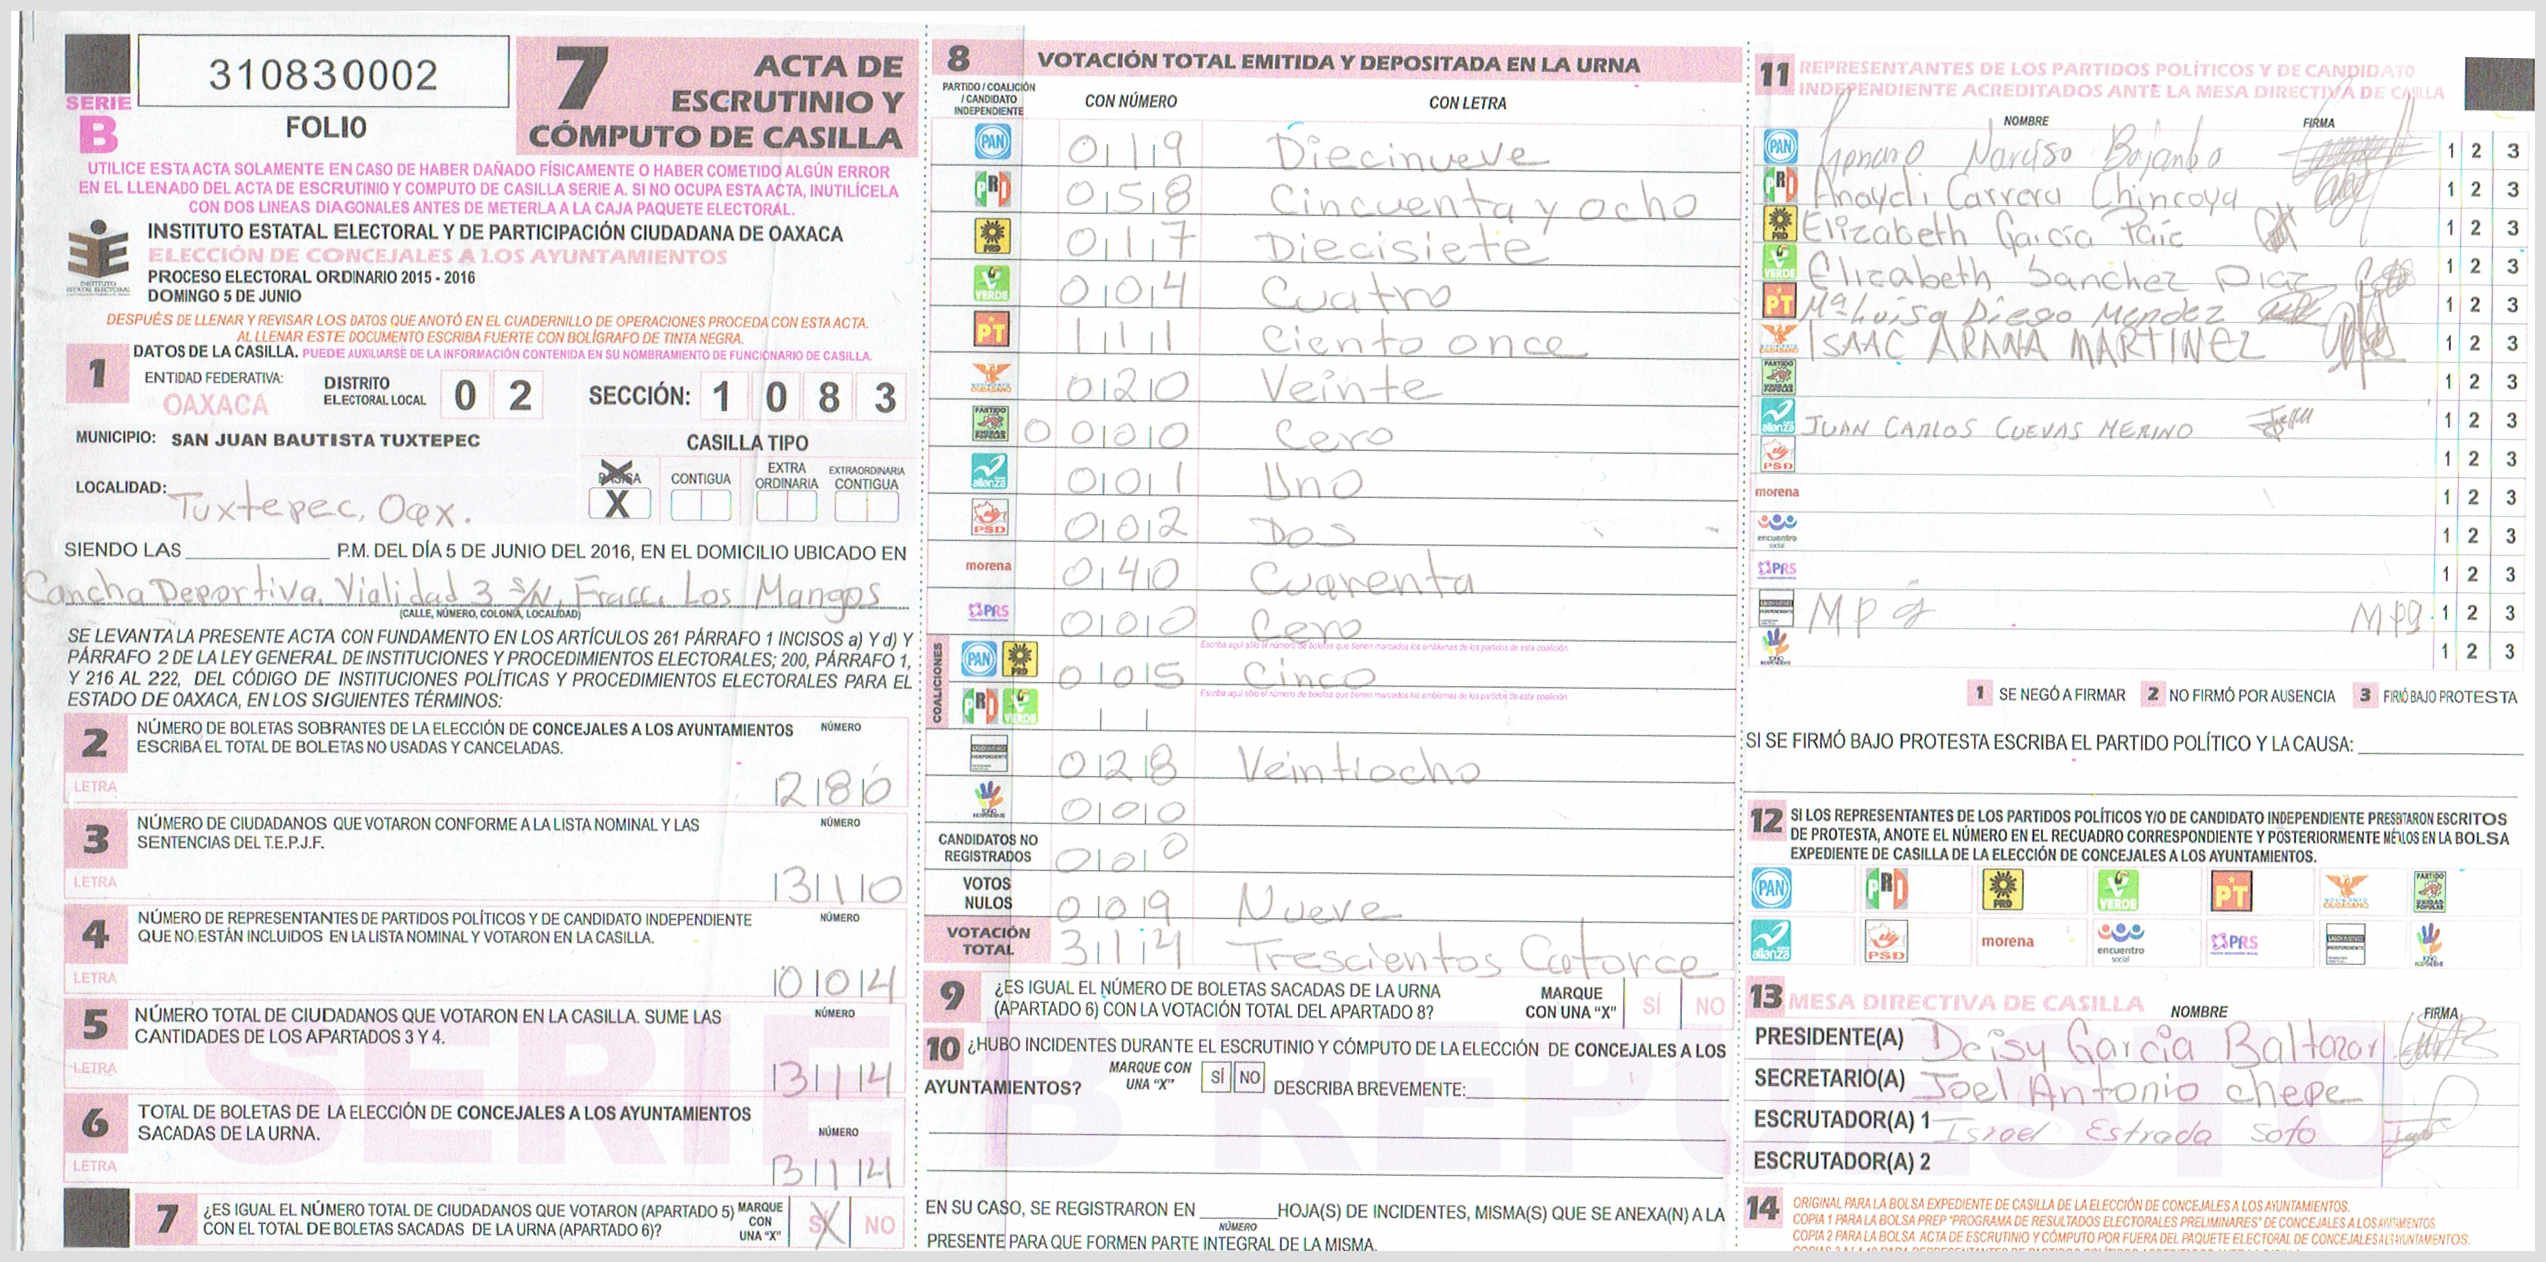 310830002
FOLIO
SERIE
B
7 ACTA DE
ESCRUTINIO Y
CÓMPUTO DE CASILLA
UTILICE ESTA ACTA SOLAMENTE EN CASO DE HABER DAÑADO FÍSICAMENTE O HABER COMETIDO ALGÚN ERROR
EN EL LLENADO DEL ACTA DE ESCRUTINIO Y COMPUTO DE CASILLA SERIE A. SI NO OCUPA ESTA ACTA, INUTILÍCELA
CON DOS LINEAS DIAGONALES ANTES DE METERLA A LA CAJA PAQUETE ELECTORAL.
INSTITUTO ESTATAL ELECTORAL Y DE PARTICIPACIÓN CIUDADANA DE OAXACA
ELECCIÓN DE CONCEJALES A LOS AYUNTAMIENTOS
PROCESO ELECTORAL ORDINARIO 2015 - 2016
DOMINGO 5 DE JUNIO
DESPUÉS DE LLENAR Y REVISAR LOS DATOS QUE ANOTÓ EN EL CUADERNILLO DE OPERACIONES PROCEDA CON ESTA ACTA.
AL LLENAR ESTE DOCUMENTO ESCRIBA FUERTE CON BOLÍGRAFO DE TINTA NEGRA.
1 DATOS DE LA CASILLA. PUEDE AUXILIARSE DE LA INFORMACIÓN CONTENIDA EN SU NOMBRAMIENTO DE FUNCIONARIO DE CASILLA.
ENTIDAD FEDERATIVA: OAXACA
DISTRITO ELECTORAL LOCAL 0 2
SECCIÓN: 1 0 8 3
MUNICIPIO: SAN JUAN BAUTISTA TUXTEPEC
CASILLA TIPO
BÁSICA X CONTIGUA EXTRA ORDINARIA EXTRAORDINARIA CONTIGUA
LOCALIDAD: Tuxtepec, Oax.
SIENDO LAS ____ P.M. DEL DÍA 5 DE JUNIO DEL 2016, EN EL DOMICILIO UBICADO EN
Cancha Deportiva, Vialidad 3 S/N, Fracc. Los Mangos
(CALLE, NÚMERO, COLONIA, LOCALIDAD)
SE LEVANTA LA PRESENTE ACTA CON FUNDAMENTO EN LOS ARTÍCULOS 261 PÁRRAFO 1 INCISOS a) Y d) Y
PÁRRAFO 2 DE LA LEY GENERAL DE INSTITUCIONES Y PROCEDIMIENTOS ELECTORALES; 200, PÁRRAFO 1,
Y 216 AL 222, DEL CÓDIGO DE INSTITUCIONES POLÍTICAS Y PROCEDIMIENTOS ELECTORALES PARA EL
ESTADO DE OAXACA, EN LOS SIGUIENTES TÉRMINOS:
2 NÚMERO DE BOLETAS SOBRANTES DE LA ELECCIÓN DE CONCEJALES A LOS AYUNTAMIENTOS NÚMERO
ESCRIBA EL TOTAL DE BOLETAS NO USADAS Y CANCELADAS.
LETRA 280
3 NÚMERO DE CIUDADANOS QUE VOTARON CONFORME A LA LISTA NOMINAL Y LAS NÚMERO
SENTENCIAS DEL T.E.P.J.F.
LETRA 310
4 NÚMERO DE REPRESENTANTES DE PARTIDOS POLÍTICOS Y DE CANDIDATO INDEPENDIENTE NÚMERO
QUE NO ESTÁN INCLUIDOS EN LA LISTA NOMINAL Y VOTARON EN LA CASILLA.
LETRA 004
5 NÚMERO TOTAL DE CIUDADANOS QUE VOTARON EN LA CASILLA. SUME LAS NÚMERO
CANTIDADES DE LOS APARTADOS 3 Y 4.
LETRA 314
6 TOTAL DE BOLETAS DE LA ELECCIÓN DE CONCEJALES A LOS AYUNTAMIENTOS
SACADAS DE LA URNA. NÚMERO
LETRA 314
7 ¿ES IGUAL EL NÚMERO TOTAL DE CIUDADANOS QUE VOTARON (APARTADO 5) MARQUE CON UNA "X" SÍ X NO
CON EL TOTAL DE BOLETAS SACADAS DE LA URNA (APARTADO 6)?
8 VOTACIÓN TOTAL EMITIDA Y DEPOSITADA EN LA URNA
PARTIDO / COALICIÓN / CANDIDATO INDEPENDIENTE CON NÚMERO CON LETRA
PAN 019 Diecinueve
PRI 058 Cincuenta y ocho
PRD 017 Diecisiete
VERDE 004 Cuatro
PT 111 Ciento once
MOVIMIENTO CIUDADANO 020 Veinte
PARTIDO UNIDAD POPULAR 0 000 Cero
alianza 001 Uno
PSD 002 Dos
morena 040 Cuarenta
PRS 000 Cero
COALICIONES
Escriba aquí sólo el número de boletas que tienen marcados los emblemas de los partidos de esta coalición.
PAN PRD 005 Cinco
Escriba aquí sólo el número de boletas que tienen marcados los emblemas de los partidos de esta coalición.
PRI VERDE
028 Veintiocho
000
CANDIDATOS NO REGISTRADOS 000
VOTOS NULOS 009 Nueve
VOTACIÓN TOTAL 314 Trescientos Catorce
9 ¿ES IGUAL EL NÚMERO DE BOLETAS SACADAS DE LA URNA MARQUE CON UNA "X" SÍ NO
(APARTADO 6) CON LA VOTACIÓN TOTAL DEL APARTADO 8?
10 ¿HUBO INCIDENTES DURANTE EL ESCRUTINIO Y CÓMPUTO DE LA ELECCIÓN DE CONCEJALES A LOS
AYUNTAMIENTOS? MARQUE CON UNA "X" SÍ NO DESCRIBA BREVEMENTE:
EN SU CASO, SE REGISTRARON EN ____ HOJA(S) DE INCIDENTES, MISMA(S) QUE SE ANEXA(N) A LA
NÚMERO
PRESENTE PARA QUE FORMEN PARTE INTEGRAL DE LA MISMA.
11 REPRESENTANTES DE LOS PARTIDOS POLÍTICOS Y DE CANDIDATO
INDEPENDIENTE ACREDITADOS ANTE LA MESA DIRECTIVA DE CASILLA
NOMBRE FIRMA
PAN Narciso 1 2 3
PRI Anaydi Carrera Chincoya 1 2 3
PRD Elizabeth García 1 2 3
VERDE Elizabeth Sanchez Diaz 1 2 3
PT Mª Luisa Diego Mendez 1 2 3
ISAAC ARANA MARTINEZ 1 2 3
PARTIDO UNIDAD POPULAR 1 2 3
alianza JUAN CARLOS CUEVAS MERINO 1 2 3
PSD 1 2 3
morena 1 2 3
encuentro social 1 2 3
PRS 1 2 3
1 2 3
1 2 3
1 SE NEGÓ A FIRMAR 2 NO FIRMÓ POR AUSENCIA 3 FIRMÓ BAJO PROTESTA
SI SE FIRMÓ BAJO PROTESTA ESCRIBA EL PARTIDO POLÍTICO Y LA CAUSA:
12 SI LOS REPRESENTANTES DE LOS PARTIDOS POLÍTICOS Y/O DE CANDIDATO INDEPENDIENTE PRESENTARON ESCRITOS
DE PROTESTA, ANOTE EL NÚMERO EN EL RECUADRO CORRESPONDIENTE Y POSTERIORMENTE MÉTALOS EN LA BOLSA
EXPEDIENTE DE CASILLA DE LA ELECCIÓN DE CONCEJALES A LOS AYUNTAMIENTOS.
PAN PRI PRD VERDE PT PARTIDO UNIDAD POPULAR
alianza PSD morena encuentro social PRS
13 MESA DIRECTIVA DE CASILLA
NOMBRE FIRMA
PRESIDENTE(A) Deisy García Baltazar
SECRETARIO(A) Joel Antonio Chepe
ESCRUTADOR(A) 1 Israel Estrada Soto
ESCRUTADOR(A) 2
SERIE B REPUESTO
14 ORIGINAL PARA LA BOLSA EXPEDIENTE DE CASILLA DE LA ELECCIÓN DE CONCEJALES A LOS AYUNTAMIENTOS.
COPIA 1 PARA LA BOLSA PREP "PROGRAMA DE RESULTADOS ELECTORALES PRELIMINARES" DE CONCEJALES A LOS AYUNTAMIENTOS
COPIA 2 PARA LA BOLSA ACTA DE ESCRUTINIO Y CÓMPUTO POR FUERA DEL PAQUETE ELECTORAL DE CONCEJALES A LOS AYUNTAMIENTOS.